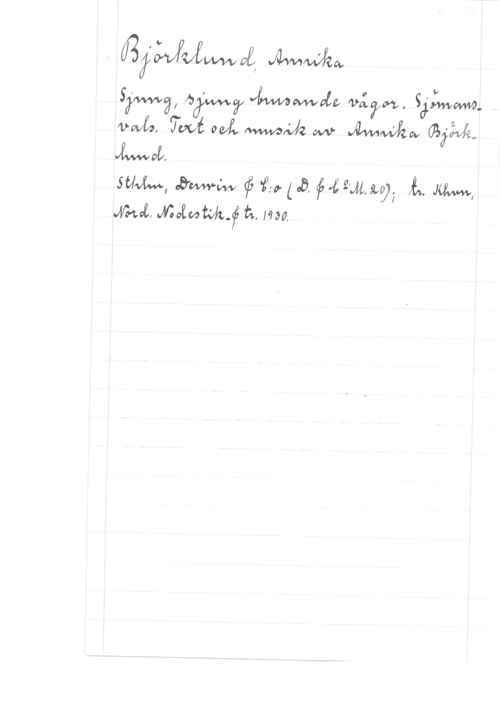 Björklund, Annika
Sjung, sjung brusande vågor. Sjömans-
vals. Text och musik av Annika Björk-
lund.
Sthlm, Derwin & C:o (D. & C:o M. 20); tr. Khvn,
Nord. Nodestik. & tr. 1930.